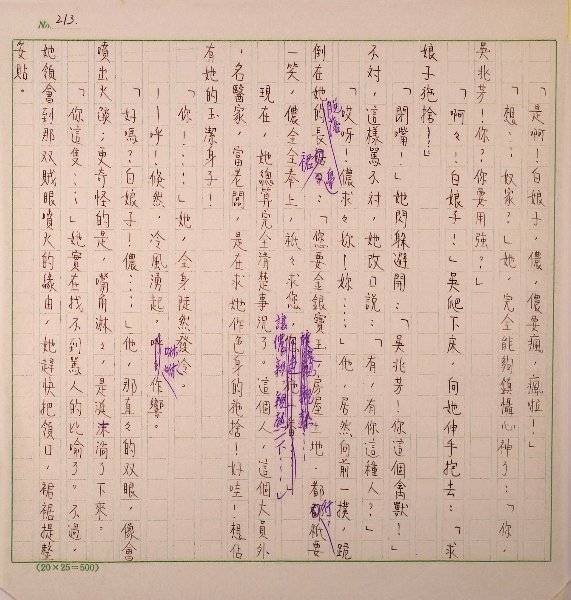 No. 213.
「是啊!白娘子,儂,儂要瘋,瘋啦!」
「想…奴家?」她,完全能夠鎮懾心神了:「你,
吳兆芳!你?你要用強?」
「啊々!白娘子!」吳爬下床,向她伸手抱去:「求
娘子施捨!」
「閉嘴!」她閃躲避開:「吳兆芳!你這個禽獸!」
不對,這樣罵不對,她改口說:「有,有你這種人?」
「哎呀!儂求々你!妳……」他,居然向前一撲,跪
倒在她的長裙邊:「您要金銀寶玉,房屋土地,都行,祇要
一笑,儂全全奉上,祇々求您讓儂親親
現在,她總算完全清楚事況了。這個人,這個大員外
,名醫家,富老闆,是在求她作色身的施捨!好哇!想佔
有她的玉潔身子!
「你!……」她,全身陡然發冷。
——呼!倏然,冷風湧起,咻咻作響。
「好嗎?白娘子!儂……」他,那直々的双眼,像會
噴出火燄;更奇怪的是,嘴角淋々,是涎沫淌了下來。
「你這隻……」她實在找不到罵人的比喻了。不過,
她領會到那双賊眼噴火的緣由,她趕快把領口,裙裾提整
妥貼。
(20×25=500)